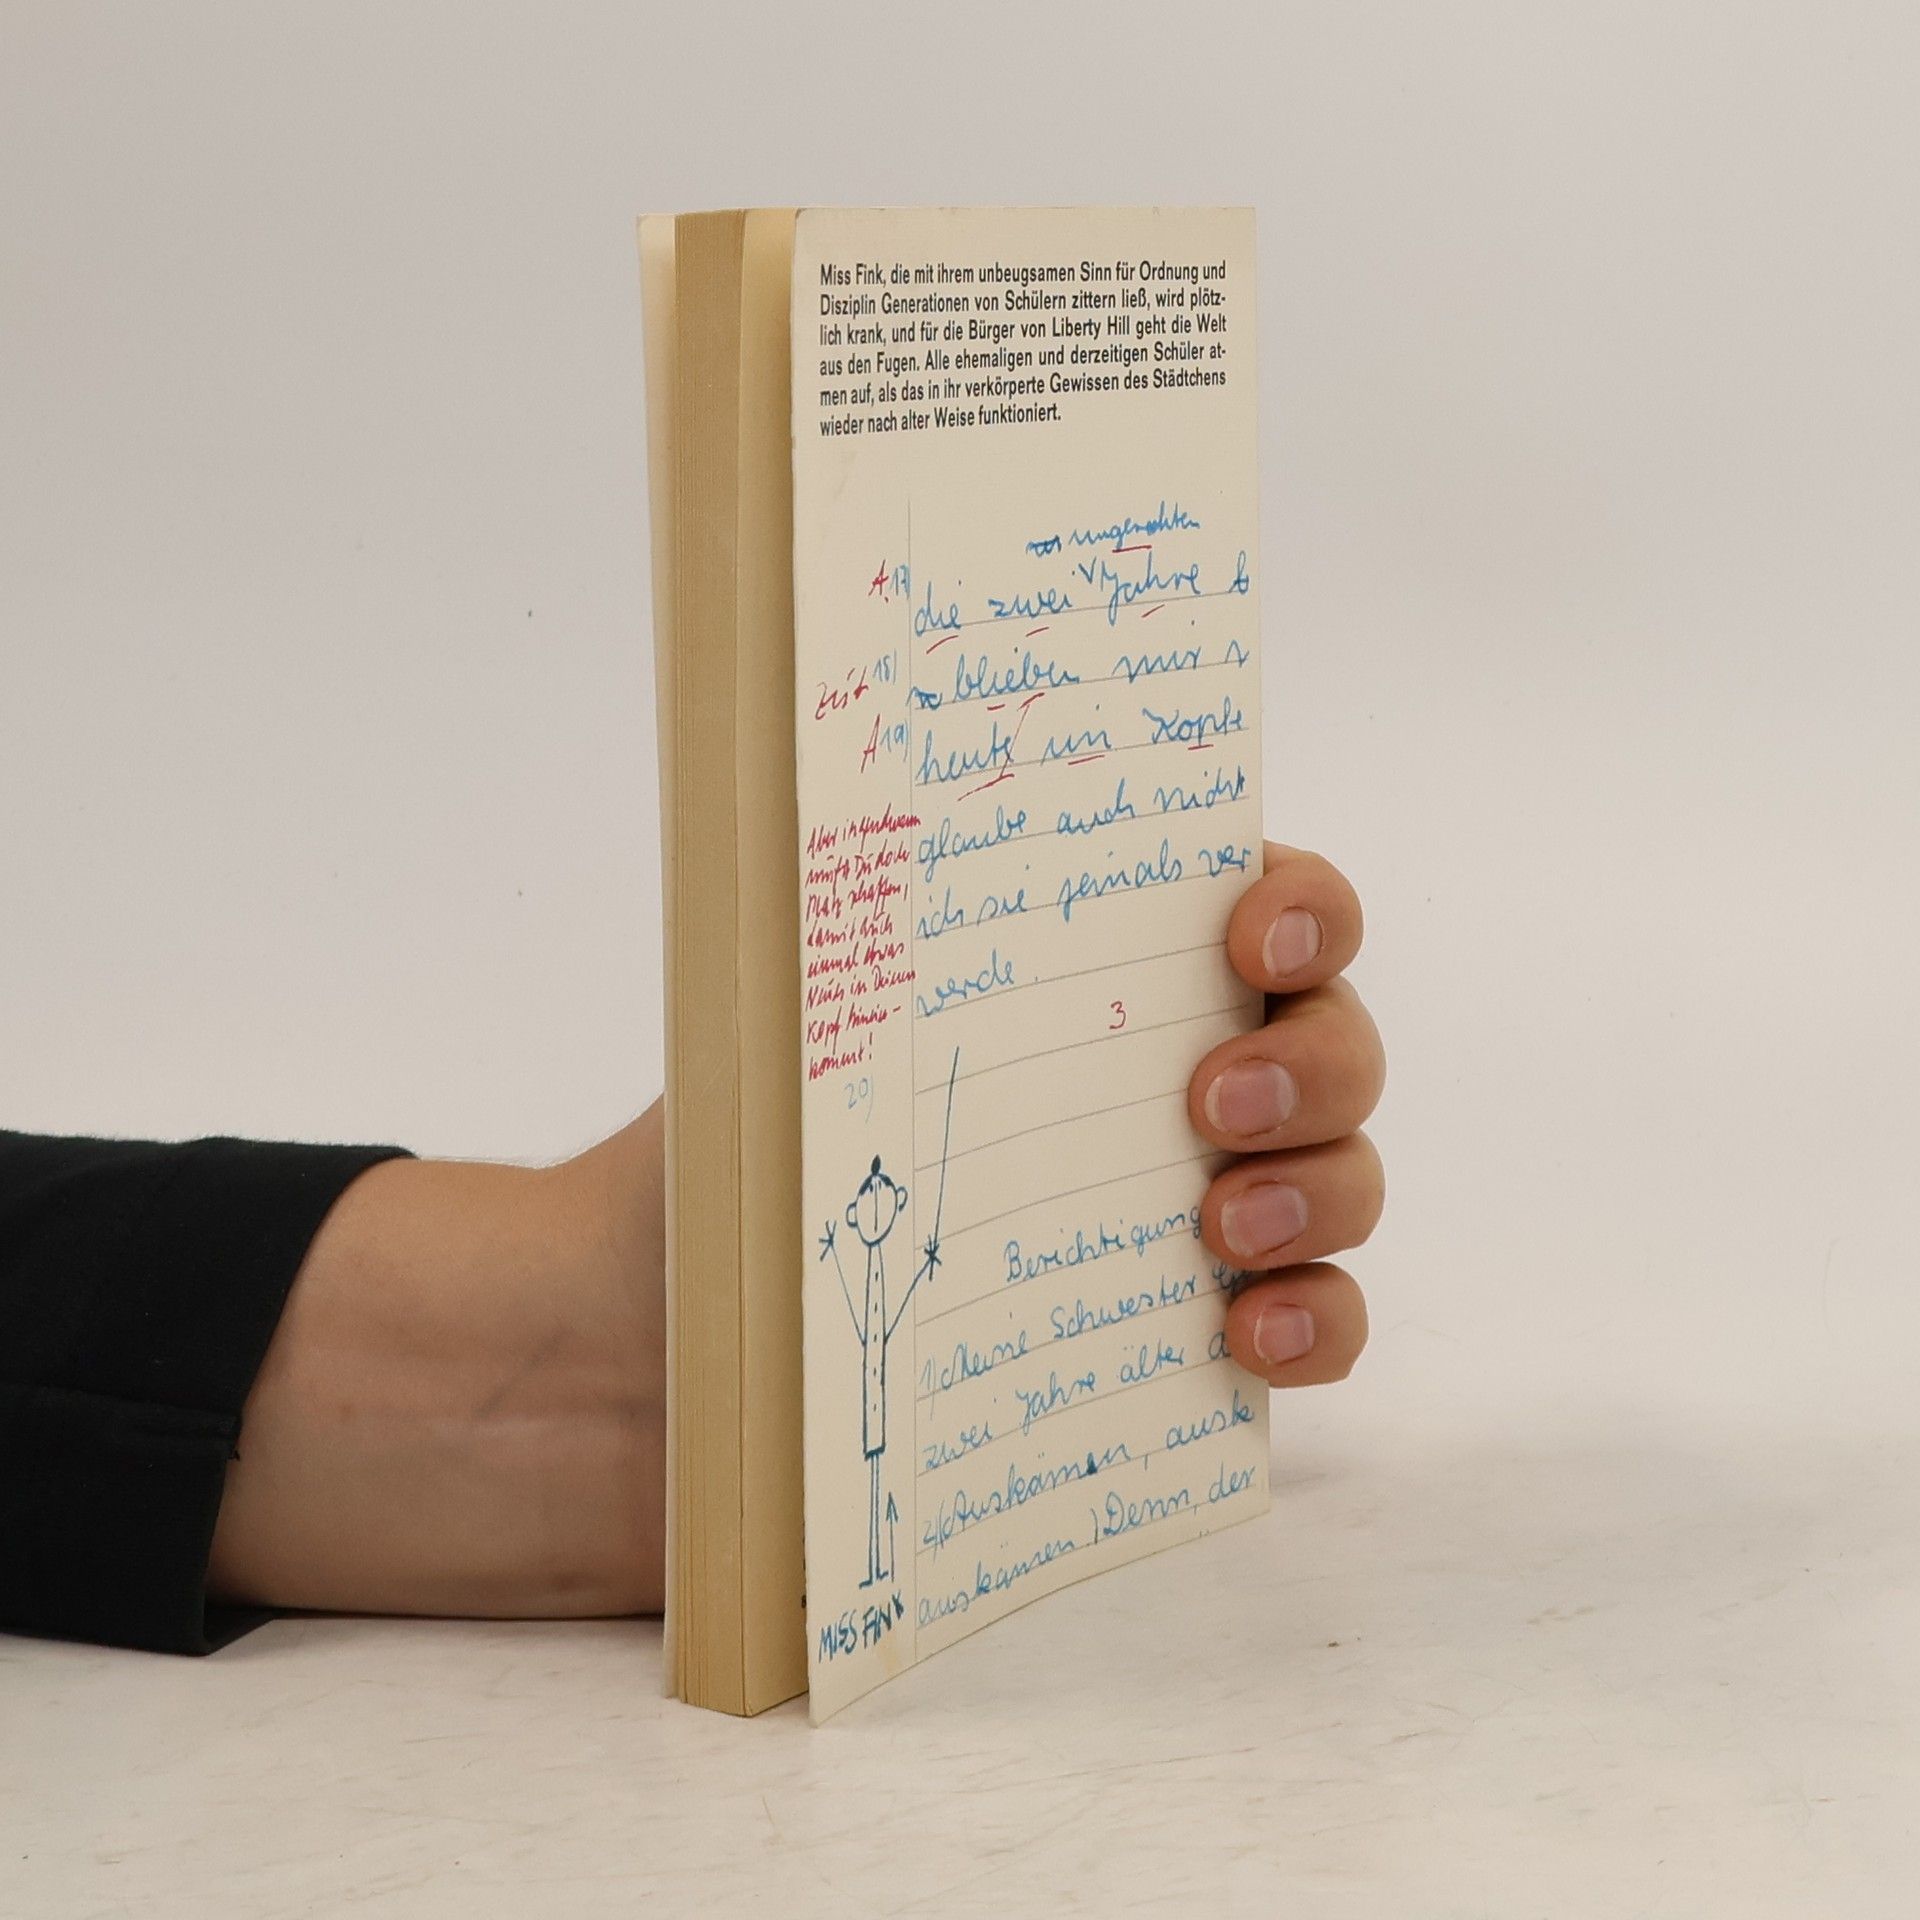 Miss Fink, die mit ihrem unbeugsamen Sinn für Ordnung und
Disziplin Generationen von Schülern zittern ließ, wird plötz-
lich krank, und für die Bürger von Liberty Hill geht die Welt
aus den Fugen. Alle ehemaligen und derzeitigen Schüler at-
men auf, als das in ihr verkörperte Gewissen des Städtchens
wieder nach alter Weise funktioniert.
ungerechten
A 17) die zwei Jahre b
Zeit 18) blieben mir
A 19) heute im Kopfe
glaube auch nicht
ich sie jemals ver
werde.
Aber irgendwann
mußt Du doch
Platz schaffen,
damit auch
einmal etwas
Neues in Deinen
Kopf hinein-
kommt!
20)
3
Berichtigung
1) Meine Schwester
zwei Jahre älter a
2) (Auskämen, ausk
auskämen) Denn, der
MISS FINK